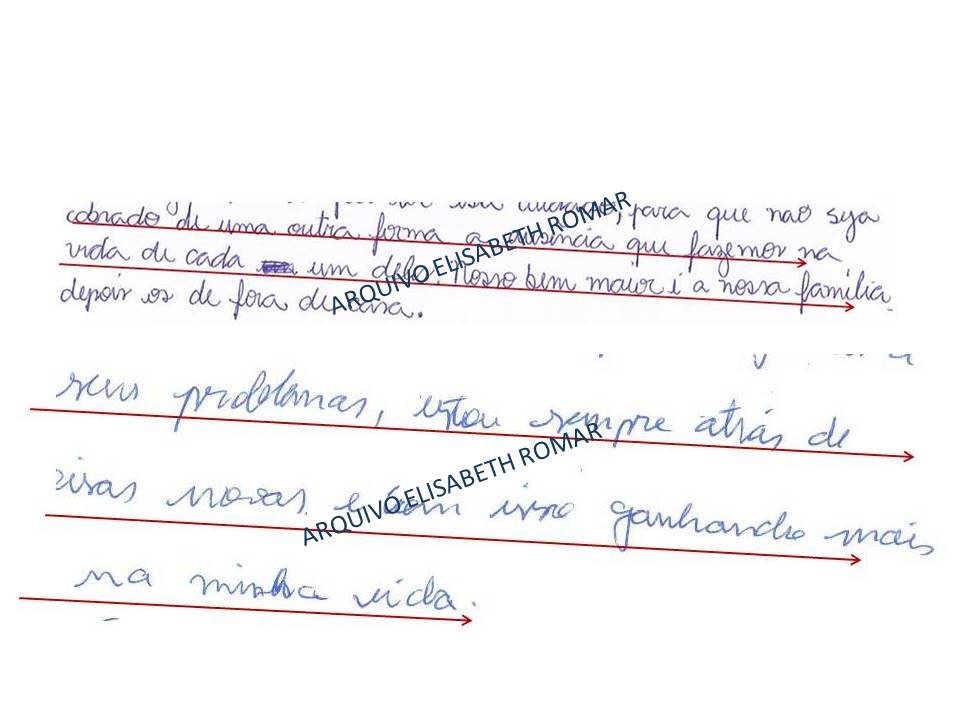 para que não seja
cobrado de uma outra forma a ausência que fazemos na
vida de cada um deles. Nosso bem maior é a nossa família
depois os de fora de casa.
ARQUIVO ELISABETH ROMAR
seus problemas, estou sempre atrás de
novas, e com isso ganhando mais
na minha vida.
ARQUIVO ELISABETH ROMAR